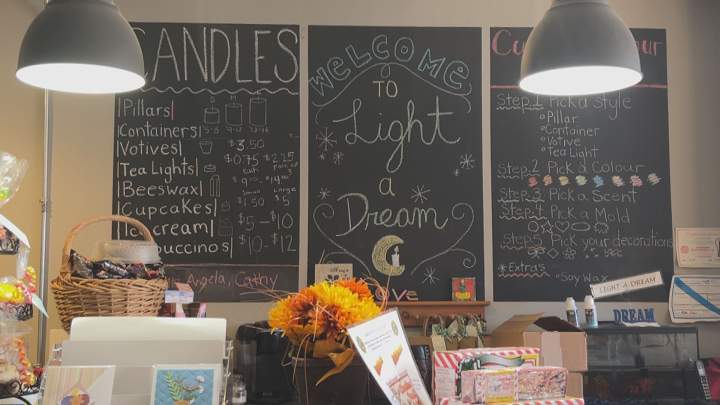 CANDLES
Pillars
Containers
Votives $3.50
Tea Lights $0.75 $2.25
Each
Beeswax
Small Large
Cupcakes $1.50
Ice cream $5 - $10
$10 - $12
Angela, Cathy
WELCOME
TO
Light
a
Dream
Step 1 Pick a Style
Pillar
Container
Votive
Tea Light
Step 2 Pick a Colour
Step 3 Pick a Scent
Step 4 Pick a Mold
Step 5 Pick your decorations
*Extras
Soy Wax
LIGHT A DREAM
DREAM